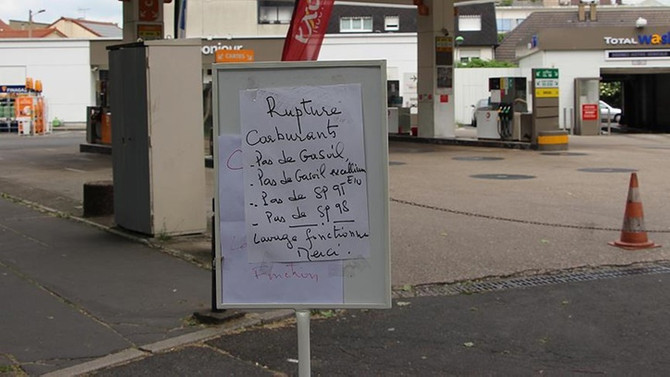 bonjour
CARTES
TOTAL Wash
FINAGAZ
Rupture
Carburants
- Pas de Gasoil,
- Pas de Gasoil excellium
- Pas de SP 95 E10
- Pas de SP 98
Lavage fonctionne
Merci.